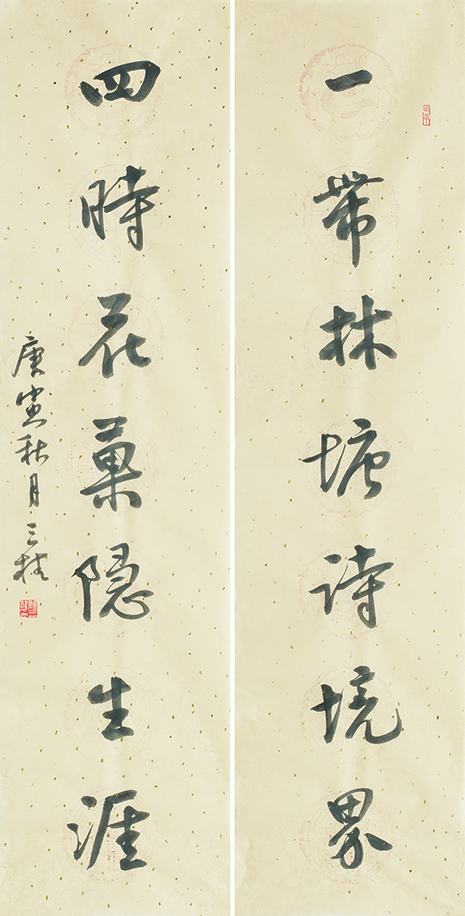 一帶林塘诗境界
四時花菓隐生涯
庚寅秋月三